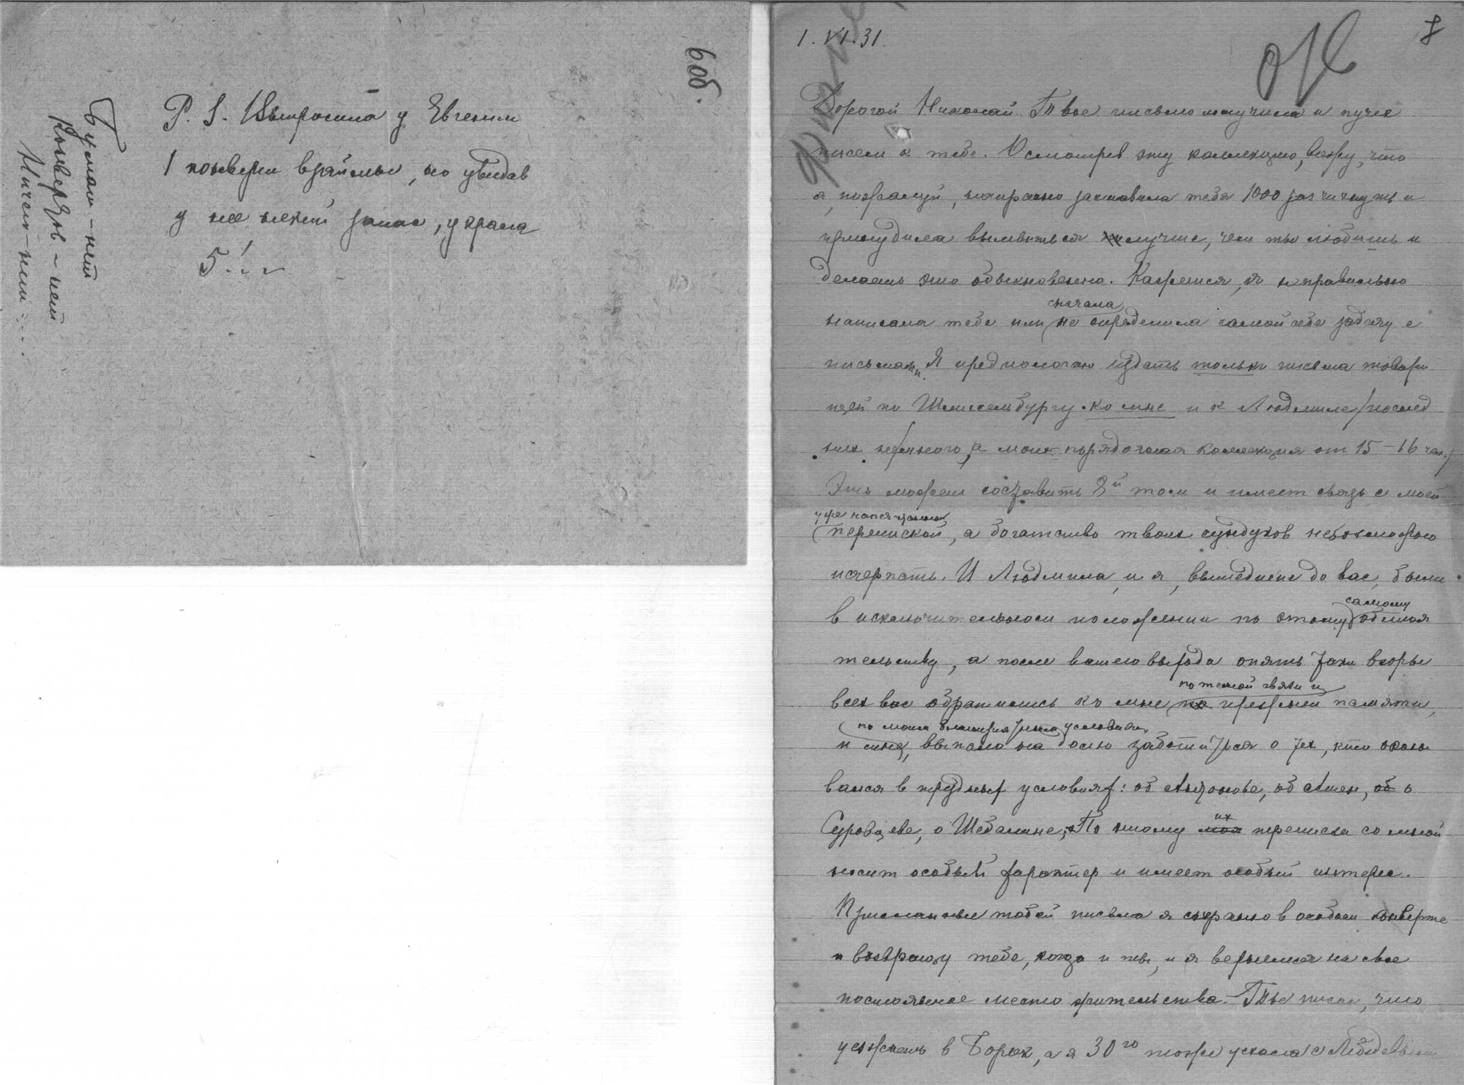 6 об.
P. S. Выпросила у Евгении
1 конверт взаймы, но увидав
у нее некий запас, украла
5!..
Бумаги – нет
Конвертов – нет
Ничего – нет....
1.VI.31.
8
Дорогой Николай. Твое письмо получила и пучек
писем к тебе. Осмотрев эту коллекцию, вижу, что
я, пожалуй, напрасно заставила тебя 1000 раз чихнуть и
принудила вымыться лучше, чем ты любишь и
делаешь это обыкновенно. Кажется, я неправильно
написала тебе или сначала не определила самой себе задачу с
письмами. Я предполагаю издать только письма товари
щей по Шлиссельбургу ко мне и к Людмиле (послед
них немного, а моих порядочная коллекция от 15–16 чел.)
Это может составить 8й том и имеет связь с моей
уже напечатанной
перепиской, а богатство твоих сундуков невозможно
исчерпать. И Людмила, и я, вышедшие до вас, были
в исключительном положении по этому самому обстоя
тельству, а после вашего выхода опять таки взоры
всех вас обратились ко мне по тесной связи и прежней памяти,
по моим благоприятным условиям
и мне выпало на долю заботиться о тех, кто оказы
вался в трудных условиях: об Антонове, об Ашен., о
Суровцеве, о Шебалине. По этому их переписка со мной
носит особый характер и имеет особый интерес.
Присланные тобой письма я сохраню в особом конверте
и возвращу тебе, когда и ты, и я вернемся на свое
постоянное место жительства. Ты писал, что
уезжаешь в Борок, а я 30го тоже уехала с Лебедевым